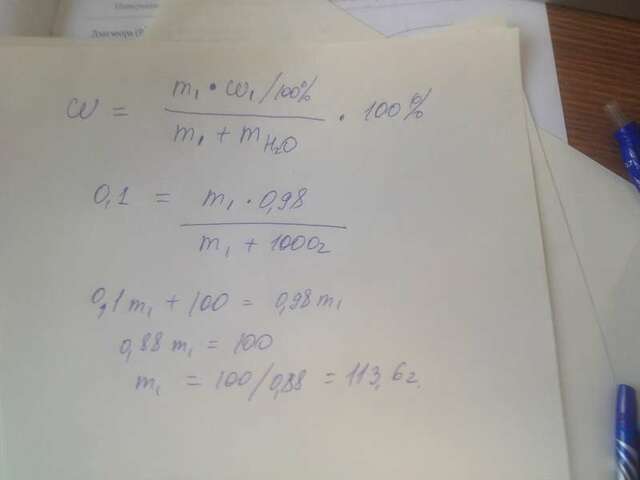 Дозатора (Р
ω = m₁ · ω₁/100% / m₁ + m H₂O · 100%
0,1 = m₁ · 0,98 / m₁ + 1000г
0,1 m₁ + 100 = 0,98 m₁
0,88 m₁ = 100
m₁ = 100/0,88 = 113,6г.